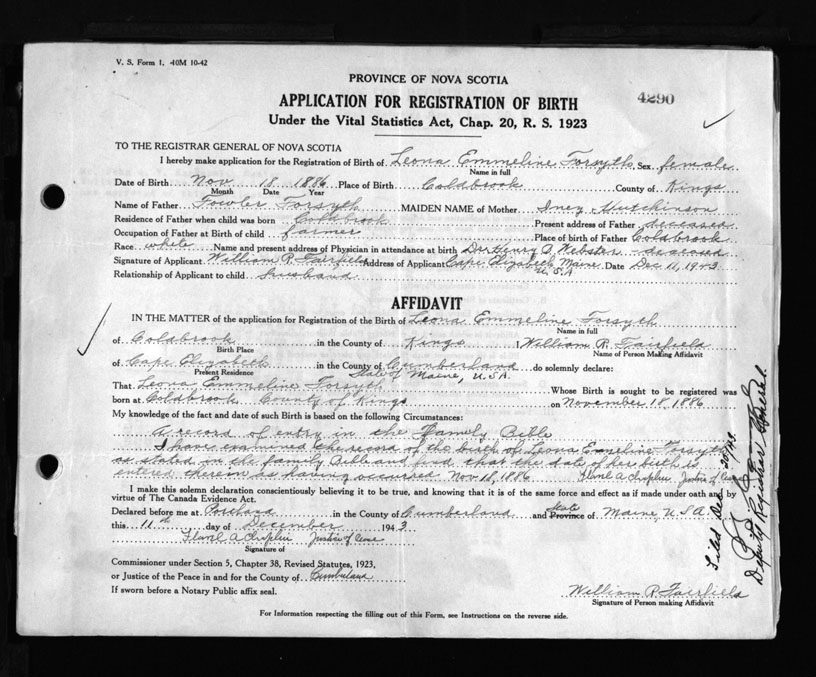 V. S. Form 1. 40M 10-42
PROVINCE OF NOVA SCOTIA
4290
APPLICATION FOR REGISTRATION OF BIRTH
Under the Vital Statistics Act, Chap. 20, R. S. 1923
TO THE REGISTRAR GENERAL OF NOVA SCOTIA
I hereby make application for the Registration of Birth of Leona Emmeline Forsyth Sex female
Name in full
Date of Birth Nov 18 1886 Place of Birth Coldbrook County of Kings
Month Date Year
Name of Father Fowler Forsyth MAIDEN NAME of Mother Inez Hutchinson
Residence of Father when child was born Coldbrook Present address of Father deceased
Occupation of Father at Birth of child farmer Place of birth of Father Coldbrook
Race white Name and present address of Physician in attendance at birth Dr Henry Webster deceased
Signature of Applicant William R. Fairfield Address of Applicant Cape Elizabeth, Maine, Date Dec 11, 1943
U.S.A
Relationship of Applicant to child husband
AFFIDAVIT
IN THE MATTER of the application for Registration of the Birth of Leona Emmeline Forsyth
Name in full
of Coldbrook in the County of Kings I William R. Fairfield
Birth Place Name of Person Making Affidavit
of Cape Elizabeth in the County of Cumberland do solemnly declare:
Present Residence State of Maine, U.S.A.
That Leona Emmeline Forsyth Whose Birth is sought to be registered was
born at Coldbrook County of Kings on November 18, 1886
My knowledge of the fact and date of such Birth is based on the following Circumstances:
A record of entry in the Family Bible
I have examined the record of the birth of Leona Emmeline Forsyth
as stated in the family Bible and find that the date of her birth is
entered therein as having occurred Nov 18, 1886 Justice of Peace
I make this solemn declaration conscientiously believing it to be true, and knowing that it is of the same force and effect as if made under oath and by
virtue of The Canada Evidence Act.
Declared before me at Portland in the County of Cumberland and State Province of Maine, U.S.A.
this 11th day of December 1943
Justice of Peace
Signature of
Commissioner under Section 5, Chapter 38, Revised Statutes, 1923,
or Justice of the Peace in and for the County of Cumberland
If sworn before a Notary Public affix seal.
William R. Fairfield
Signature of Person making Affidavit
For Information respecting the filling out of this Form, see Instructions on the reverse side.
Filed Dec
Deputy Registrar General